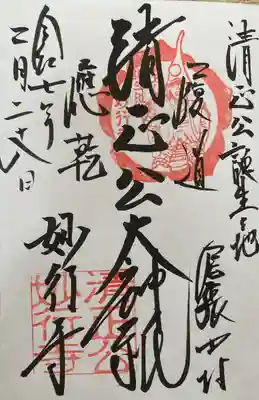 清正公誕生之地
尾張中村
履道
清正公大神祇
應乾
妙行寺
令和七年
二月二十八日
清正公
妙行寺